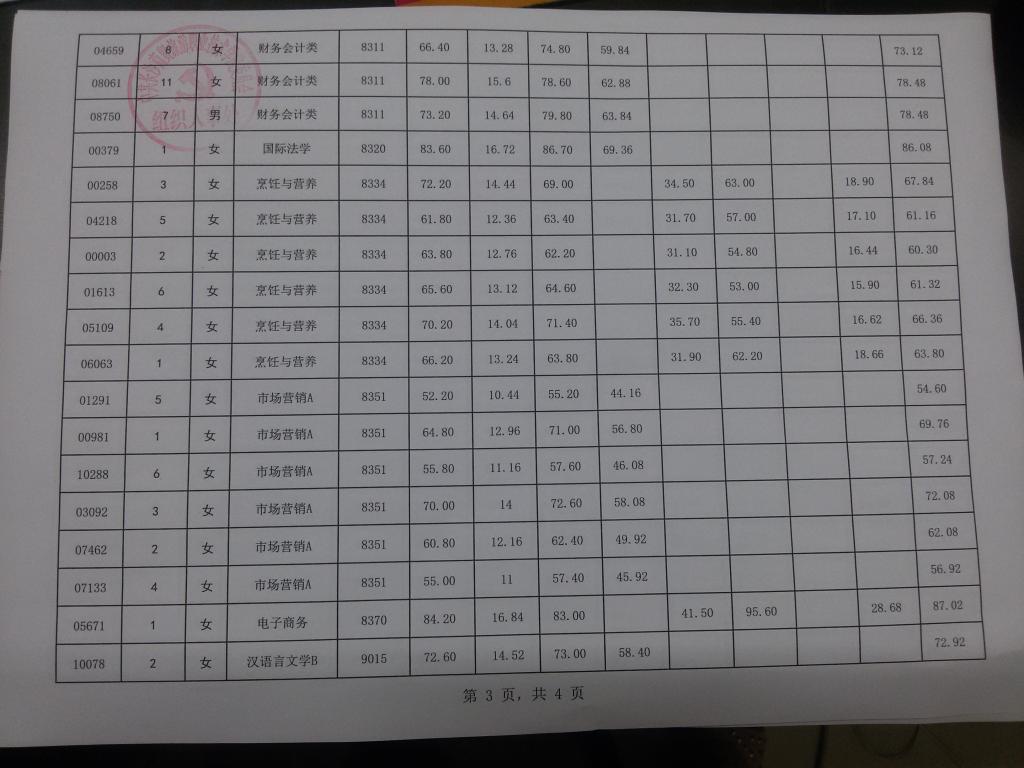 04659 8 女 财务会计类 8311 66.40 13.28 74.80 59.84 73.12
08061 11 女 财务会计类 8311 78.00 15.6 78.60 62.88 78.48
08750 7 男 财务会计类 8311 73.20 14.64 79.80 63.84 78.48
00379 1 女 国际法学 8320 83.60 16.72 86.70 69.36 86.08
00258 3 女 烹饪与营养 8334 72.20 14.44 69.00 34.50 63.00 18.90 67.84
04218 5 女 烹饪与营养 8334 61.80 12.36 63.40 31.70 57.00 17.10 61.16
00003 2 女 烹饪与营养 8334 63.80 12.76 62.20 31.10 54.80 16.44 60.30
01613 6 女 烹饪与营养 8334 65.60 13.12 64.60 32.30 53.00 15.90 61.32
05109 4 女 烹饪与营养 8334 70.20 14.04 71.40 35.70 55.40 16.62 66.36
06063 1 女 烹饪与营养 8334 66.20 13.24 63.80 31.90 62.20 18.66 63.80
01291 5 女 市场营销A 8351 52.20 10.44 55.20 44.16 54.60
00981 1 女 市场营销A 8351 64.80 12.96 71.00 56.80 69.76
10288 6 女 市场营销A 8351 55.80 11.16 57.60 46.08 57.24
03092 3 女 市场营销A 8351 70.00 14 72.60 58.08 72.08
07462 2 女 市场营销A 8351 60.80 12.16 62.40 49.92 62.08
07133 4 女 市场营销A 8351 55.00 11 57.40 45.92 56.92
05671 1 女 电子商务 8370 84.20 16.84 83.00 41.50 95.60 28.68 87.02
10078 2 女 汉语言文学B 9015 72.60 14.52 73.00 58.40 72.92
第 3 页，共 4 页
组织人事